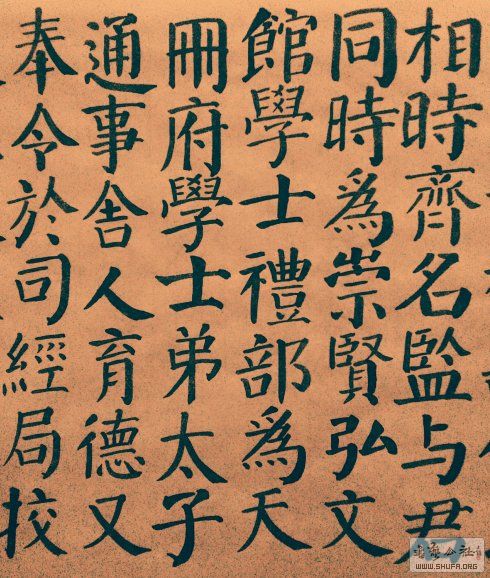 相時齊名監与君
同時爲崇賢弘文
館學士禮部爲天
冊府學士弟太子
通事舍人育德又
奉令於司經局校
WWW.SHUFA.ORG